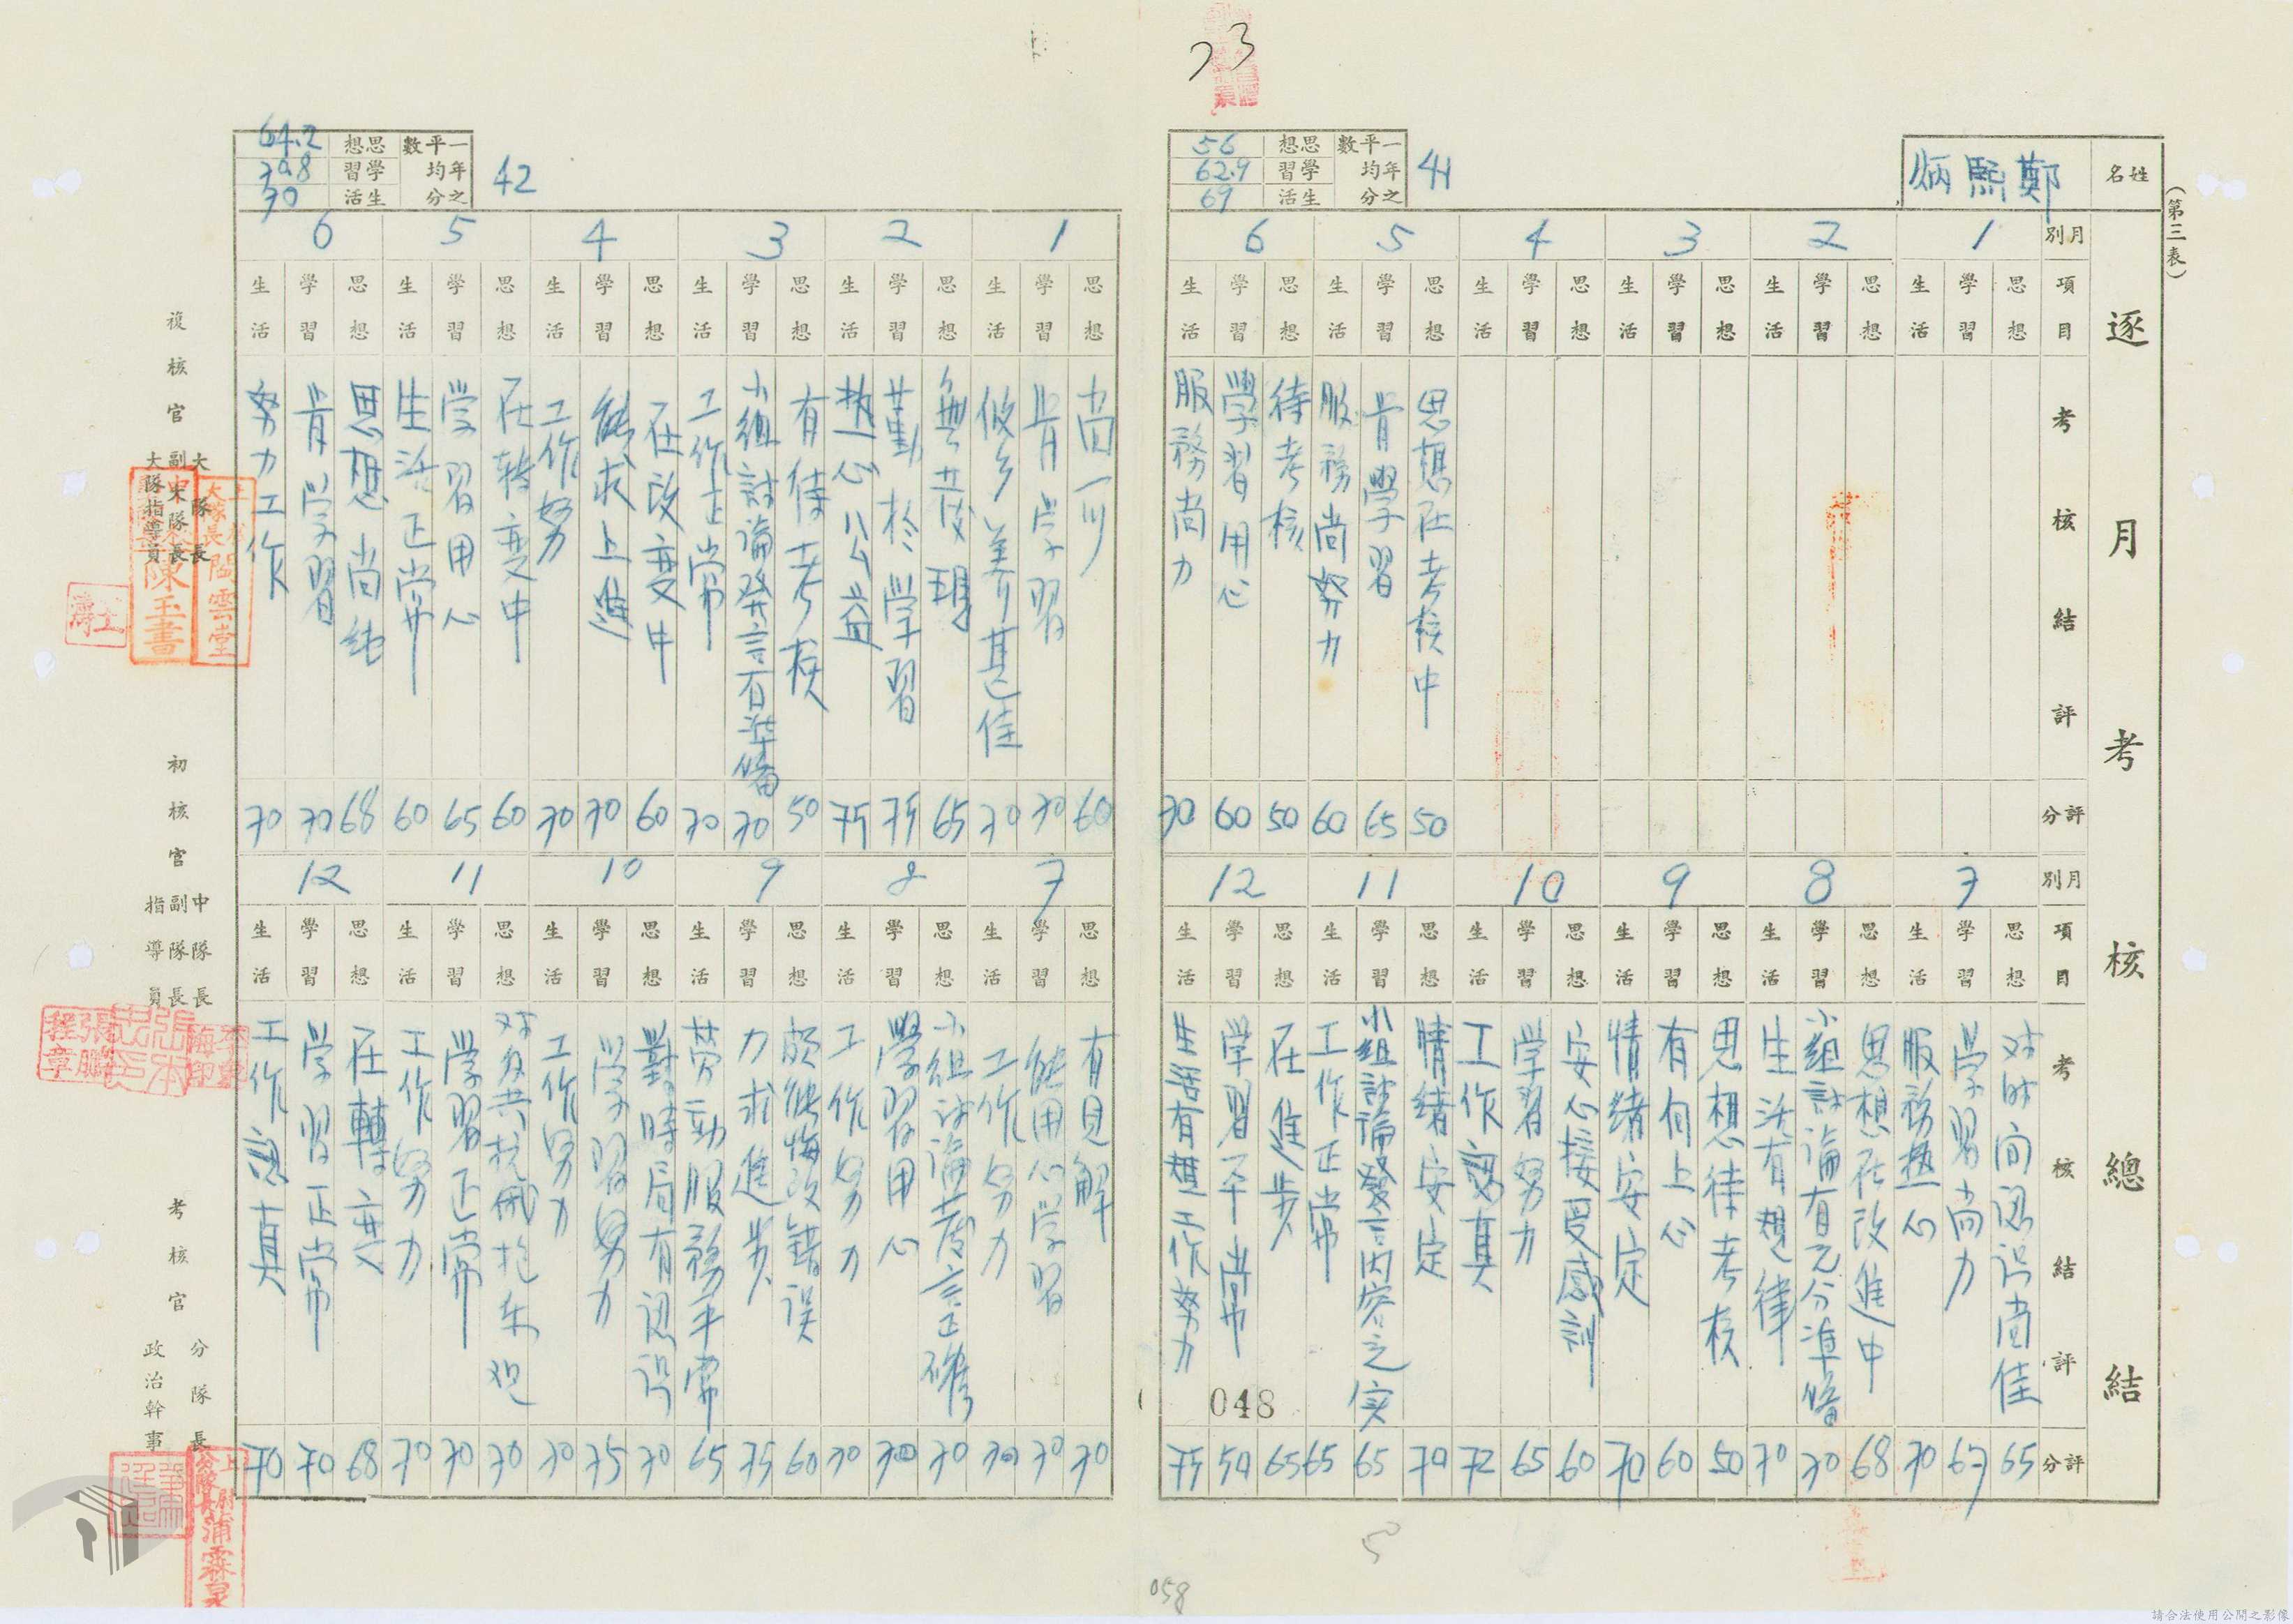 73
(第三表)
逐月考核總結
姓名 鄭熙炳
41
一年之平均分數
思想 56
學習 62.9
生活 69
月別 1 2 3 4 5 6
項目 思想 學習 生活 思想 學習 生活 思想 學習 生活 思想 學習 生活 思想 學習 生活 思想 學習 生活
考核結評
思想在考核中
肯學習
服務尚努力
待考核
學習用心
服務尚力
評分 50 65 60 50 60 70
月別 7 8 9 10 11 12
項目 思想 學習 生活 思想 學習 生活 思想 學習 生活 思想 學習 生活 思想 學習 生活 思想 學習 生活
考核結評
对时向認识尚佳
学習尚力
服務热心
思想在改進中
小組討論有充分準備
生活有規律
思想待考核
有向上心
情绪安定
安心接受感訓
学習努力
工作認真
情緒安定
小組討論發言內容之实
工作正常
在進步
学習平常
生活有規工作努力
評分 65 67 70 68 70 70 50 60 70 60 65 72 70 65 65 65 50 75
048
42
一年之平均分數
思想 64.2
學習 70.8
生活 70
1 2 3 4 5 6
思想 學習 生活 思想 學習 生活 思想 學習 生活 思想 學習 生活 思想 學習 生活 思想 學習 生活
尚可
肯学習
修養甚佳
無表現
勤於学習
热心公益
有待考核
小組討論發言有準備
工作正常
在改变中
能求上進
工作努
在转变中
学習用心
生活正常
思想尚純
肯学習
努力工作
60 70 70 65 75 75 50 70 70 60 70 70 60 65 60 68 70 70
7 8 9 10 11 12
思想 學習 生活 思想 學習 生活 思想 學習 生活 思想 學習 生活 思想 學習 生活 思想 學習 生活
有見解
能用心学習
工作努力
小組討論發言正確
學習用心
工作努力
頗能悔改錯误
力求進步
劳动服務平常
對時局有認识
学習努力
工作努力
对反共抗俄抱乐观
学習正常
工作努力
在轉变
学習正常
工作認真
70 70 70 70 70 70 60 75 65 70 75 70 70 70 70 68 70 70
複核官 大隊長 副大隊長 大隊指導員
大隊長閻雲堂
陳玉書
初核官 中隊長 副隊長 指導員
張鵬程章
考核官 分隊長 政治幹事
上尉分隊長浦霖泉
058
請合法使用公開之影像